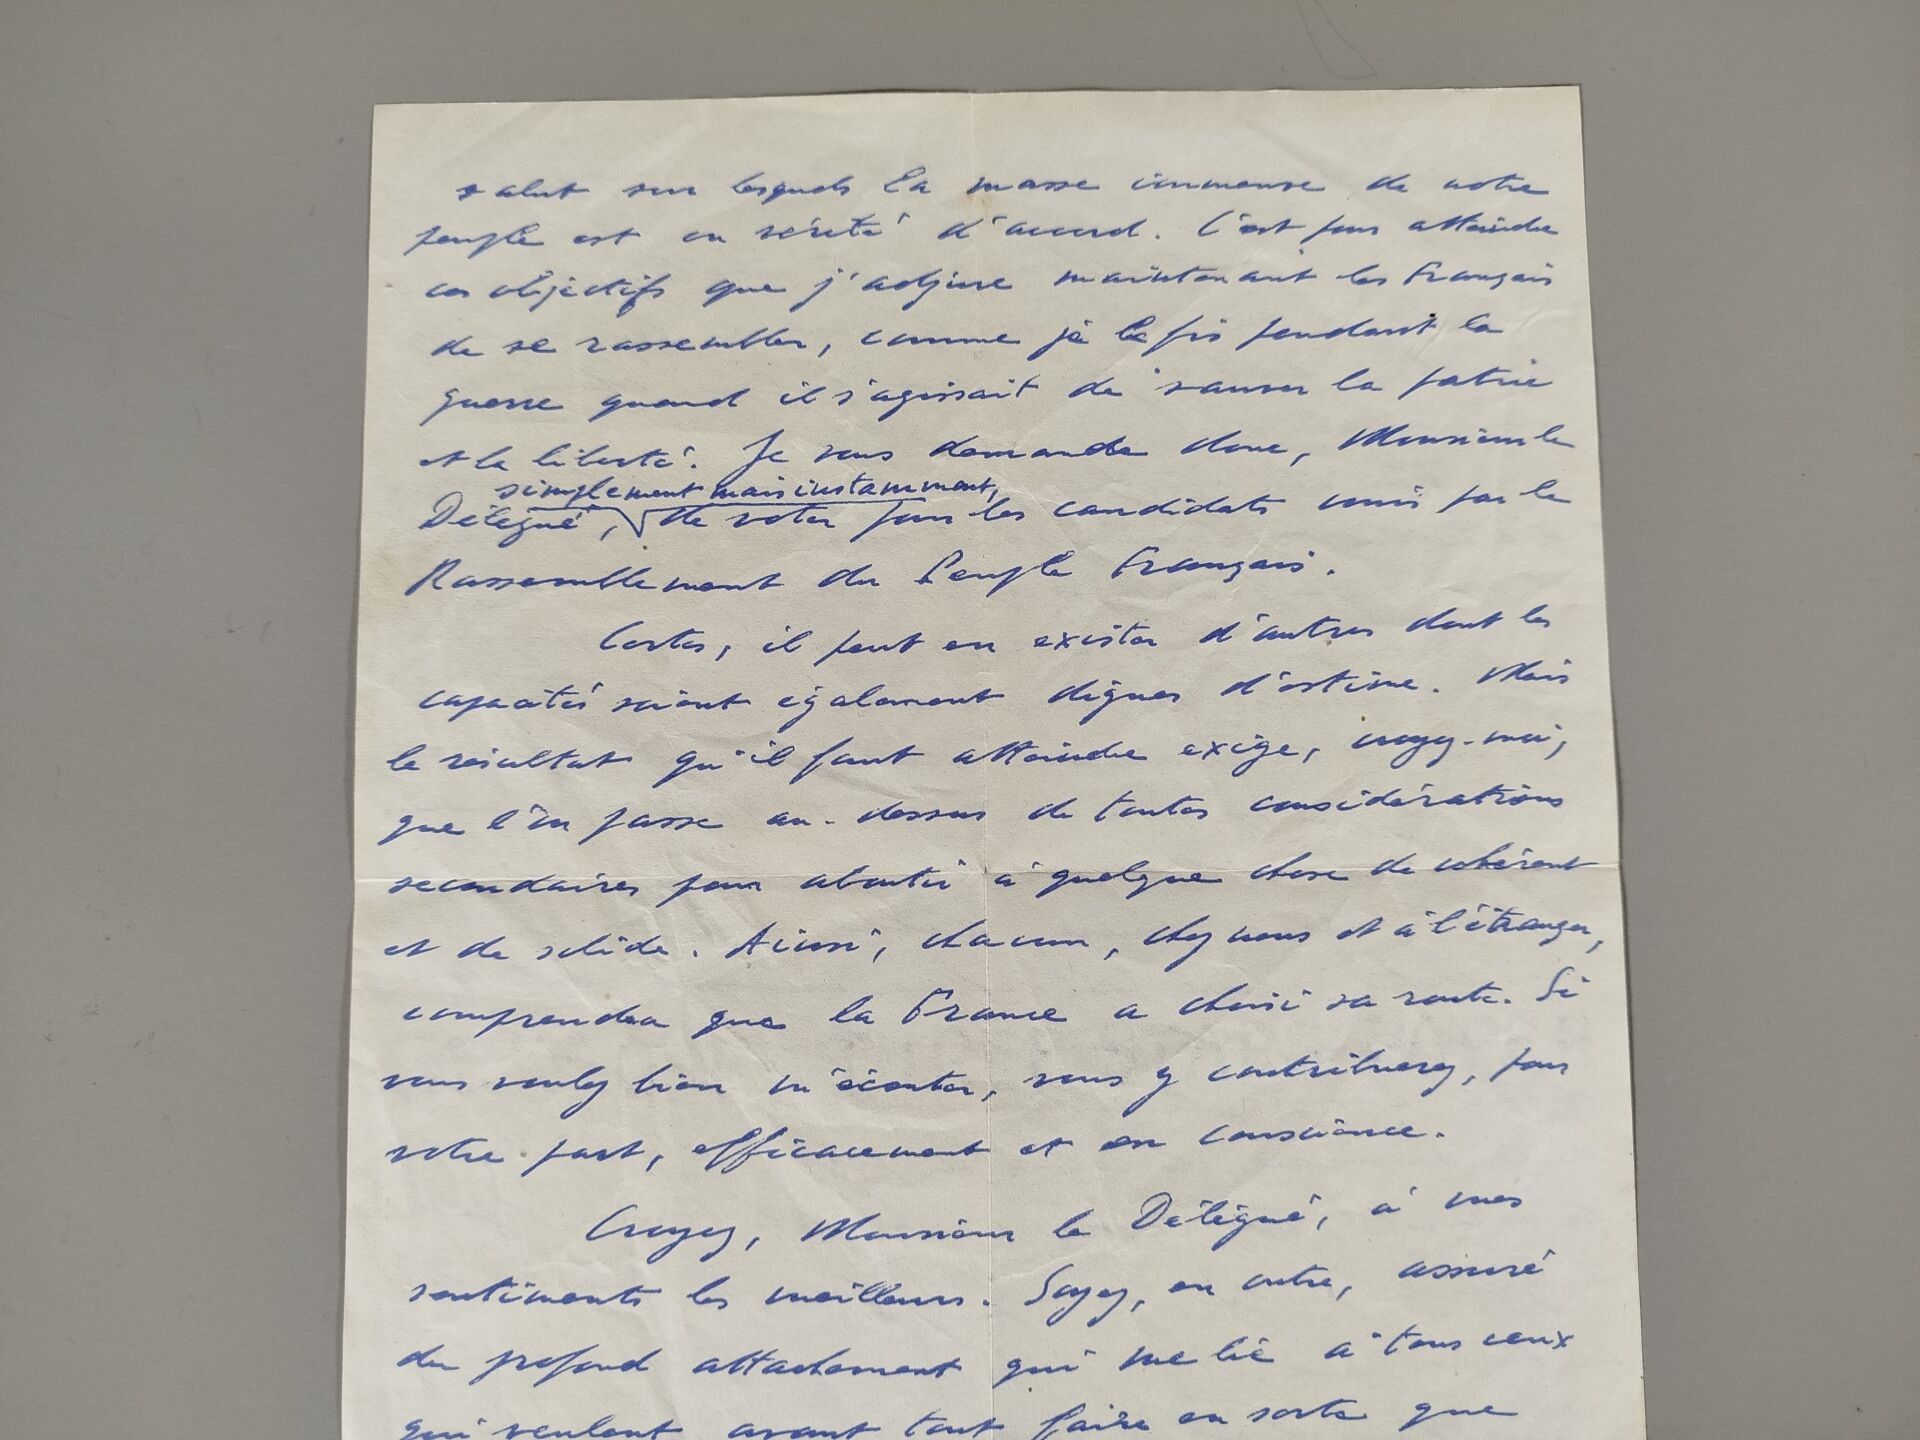 salut sur lesquels la masse immense de notre
peuple est en vérité d'accord. C'est pour atteindre
ces objectifs que j'adjure maintenant les Français
de se rassembler, comme je le fis pendant la
guerre quand il s'agissait de sauver la patrie
et la liberté. Je vous demande donc, Monsieur le
simplement mais instamment,
Délégué, de voter pour les candidats unis par le
Rassemblement du Peuple Français.
Certes, il peut en exister d'autres dont les
capacités soient également dignes d'estime. Mais
le résultat qu'il faut atteindre exige, croyez-moi,
que l'on passe au-dessus de toutes considérations
secondaires pour aboutir à quelque chose de cohérent
et de solide. Ainsi, chacun, chez nous et à l'étranger,
comprendra que la France a choisi sa route. Si
vous voulez bien m'écouter, vous y contribuerez, pour
votre part, efficacement et en conscience.
Croyez, Monsieur le Délégué, à mes
sentiments les meilleurs. Soyez, en outre, assuré
du profond attachement qui me lie à tous ceux
qui veulent avant tout faire en sorte que